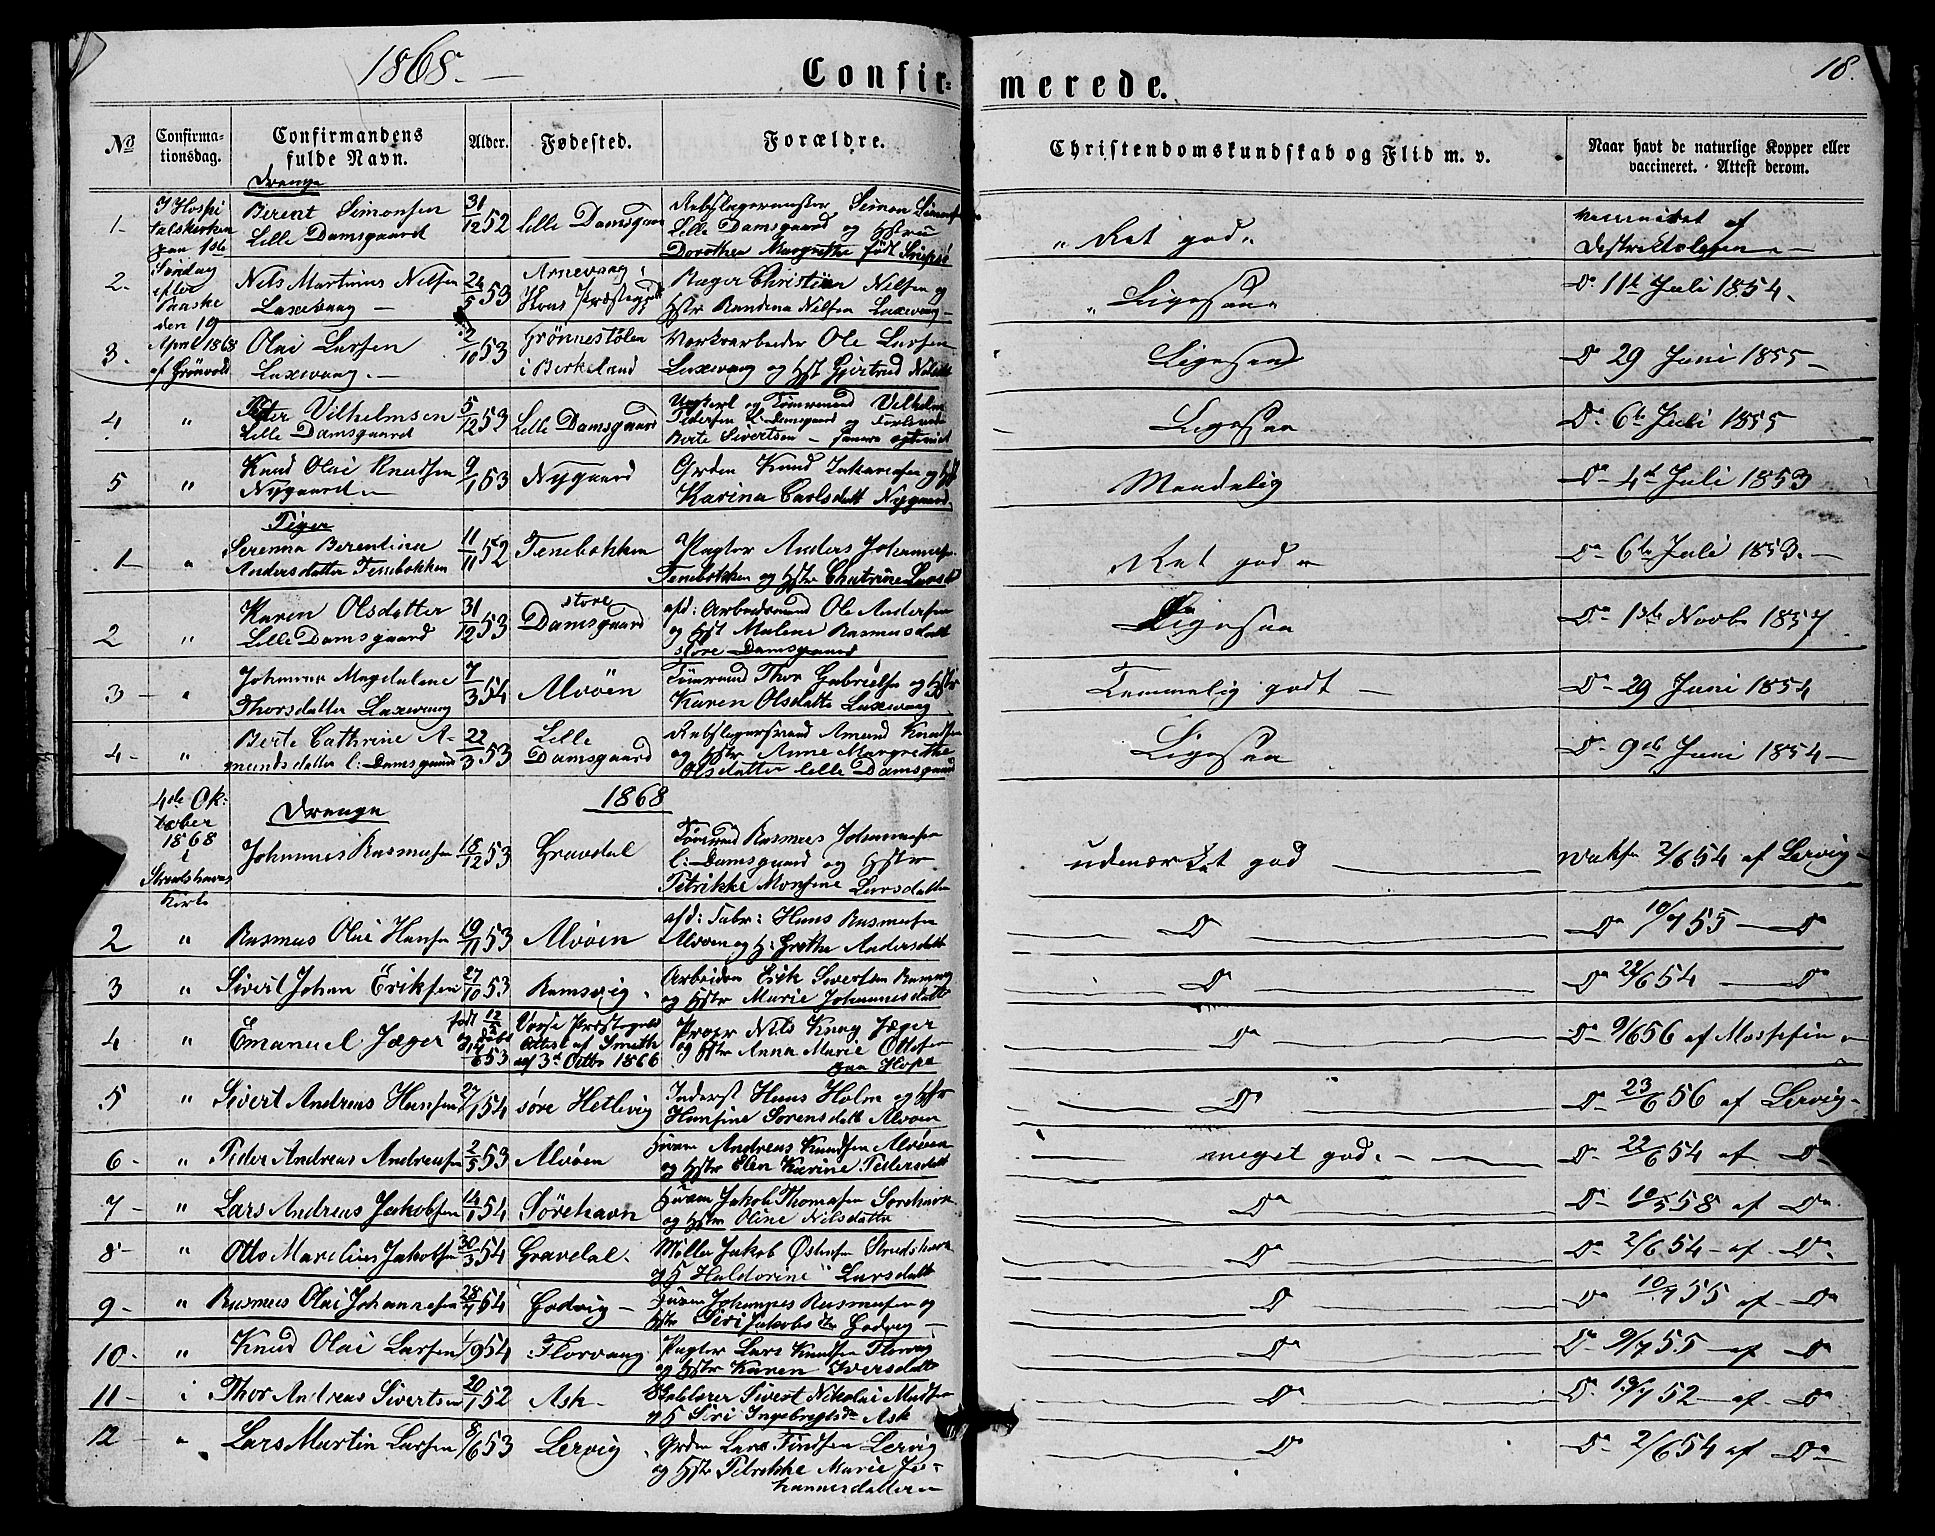 1868. —
Confir=
merede.
18.
No
Confirma-
tionsdag.
Confirmandens
fulde Navn.
Alder.
Fødested.
Forældre.
Christendomskundskab og Flid m. v.
Naar havt de naturlige Kopper eller
vaccineret. Attest derom.
Drenge
1- I Hospi Berent Simonsen 31/12 52 Lille Damsgaard Simon
talskirken Lille Damsgaard Lille Damsgaard og Hstru
paa 1ste Dorothea Margrethe født
" Ret god.
2. Søndag Nils Martinus Nilsen 53 Christian Nilsen og
efter Laxevaag — Hstr Nilsen Laxevaag
Paaske
" Ligesaa
Do 11te Juli 1854.
den 19
3. April 1868 Olai Larsen 2/10 53 Grønnestølen Ole Larsen
af Grønvold Laxevaag. — i Birkeland Laxevaag og Hst Gjertrud
Ligesaa
Do 29 Juni 1855 —
4 " Peder Vilhelmsen 5/12 53 Lille Damsgaard og Tømrmand Vilhelm
Lille Damsgaard Pedersen l: Damsgaard og
Berte Sivertsen —
Ligesaa
Do 6te Juli 1855
5 " Knud Olai Knudsen 9/1 53 Nygaard Grden Knud og Hst
Nygaard — Karina Carlsdatt Nygaard
Maadelig
Do 4de Juli 1853
Piger
1- " Serenna Berentina 11/11 52 Tenebekken Pagter Anders
Andersdatter Tenebekken Tenebekken og Hstr Chatrine
Ret god
Do 6te Juli 1853. —
2 " Karen Olsdatter 31/12 53 store Damsgaard afd: Arbeidsmand Ole Andersen
Lille Damsgaard og Hst Malene Rasmusdatt
store Damsgaard
Ligesaa
Do 1ste Novb 1857
3 — " Johanna Magdalene 7/3 54 Alvøen Tømrmand Thor Gabrielsen og Hstr
Thorsdatter Laxevaag Karen Olsdatte Laxevaag
Temmelig godt —
Do 29 Juni 1854
4- " Berte Cathrine A- 22/3 53 Lille Amund Knudsen
mundsdatter l: Damsgaard Damsgaard og Hstr Anne Margrethe
Olsdatter lille Damsgaard
Ligesaa
Do 9de Juni 1854 —
4de Ok:
tober
1868
i
Strudshavns
Kirke
Drenge
1868
Johannes Rasmusen 18/12 53 Gravdal Tømmd Rasmus Johannesen
l: Damsgaard og Hstr
Petrikke Monsine Larsdatter
udmærket god
Vaksn 2/6 54 af Lervig
2 " Rasmus Olai Hansen 19/11 53 Alvøen afd: Fabr: Hans Rasmusen
Alvøen og H: Grethe Andersdatt
Do
Do 10/7 55 — Do
3 " Sivert Johan Eriksen 27/10 53 Ramsvig Arbeiden Erik Sivertsen
og Hstr Marie Johannesdatt
Do
Do 22/6 54 — Do
4 " Emanuel Jæger født 12/2 og døbt 6 53 Vorse Præstegjeld Nils Krag Jæger
Attest af Smith og Hstr Anna Marie Ottesen
af 3de Octbr 1866 paa Hope
Do
Do 9/6 56 af
5 " Sivert Andreas Hansen 27/1 54 søre Hetlevig Inderst Hans Holm og Hstr
Hansine Sørensdatt Alvøen
Do
Do 23/6 56 af Lervig
6 - " Peder Andreas Andreasen 2/5 53 Alvøen Huusm Andreas Knudsen Alvøen
og Hstr Elen Karine Pedersdatt
meget god. —
Do 22/6 54 af Do
7 - " Lars Andreas Jakobsen 14/1 54 Sørehavn Huusm Jakob Thomasen Sørehavn
og Hstr Oline Nilsdatte
Do
Do 10/5 58 af Do
8 - " Otto Marelius Jakobsen 30/3 54 Gravdal. Møller Jakob
og H Haldorine Larsdatt
Do
Do 2/6 54 — af Do
9 - " Rasmus Olai Johannesen 28/1 54 Godvig — Huusm Johannes Rasmusen og
Hstr Siri Jakobsdtr Godvig —
Do
Do 10/7 55 af Do
10 - " Knud Olai Larsen 1/9 54 Florvaag Pagter Lars Knudsen Florvaag
og Hstr Karen Iversdatt
Do
Do 9/7 55 — af Do
11 - " Thor Andreas Sivertsen 20/1 52 Ask — Sivert Nikolai
og H Siri Ingebregtsdtr Ask
Do
Do 13/7 52 — af Do
12 - " Lars Martin Larsen 8/6 53 Lervig Grden Lars Lervig
og Hstr Petrikke Marie Jo-
hannesdatter
Do
Do 2/6 54 af Do